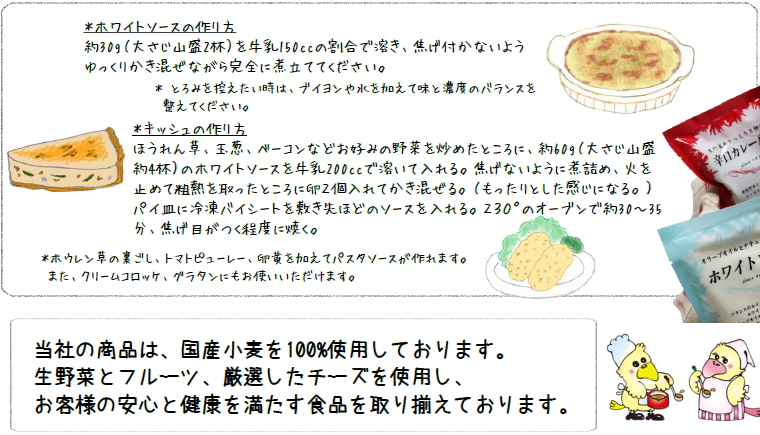 *ホワイトソースの作り方
約30g(大さじ山盛2杯)を牛乳150ccの割合で溶き、焦げ付かないよう
ゆっくりかき混ぜながら完全に煮立ててください。
* とろみを控えたい時は、ブイヨンや水を加えて味と濃度のバランスを
整えてください。
*キッシュの作り方
ほうれん草、玉葱、ベーコンなどお好みの野菜を炒めたところに、約60g(大さじ山盛
約4杯)のホワイトソースを牛乳200ccで溶いて入れる。焦げないように煮詰め、火を
止めて粗熱を取ったところに卵2個入れてかき混ぜる。(もったりとした感じになる。)
パイ皿に冷凍パイシートを敷き先ほどのソースを入れる。230°のオーブンで約30〜35
分、焦げ目がつく程度に焼く。
*ホウレン草の裏ごし、トマトピューレー、卵黄を加えてパスタソースが作れます。
また、クリームコロッケ、グラタンにもお使いいただけます。
辛口カレー
オリーブオイルとナチュ
ホワイト
当社の商品は、国産小麦を100%使用しております。
生野菜とフルーツ、厳選したチーズを使用し、
お客様の安心と健康を満たす食品を取り揃えております。